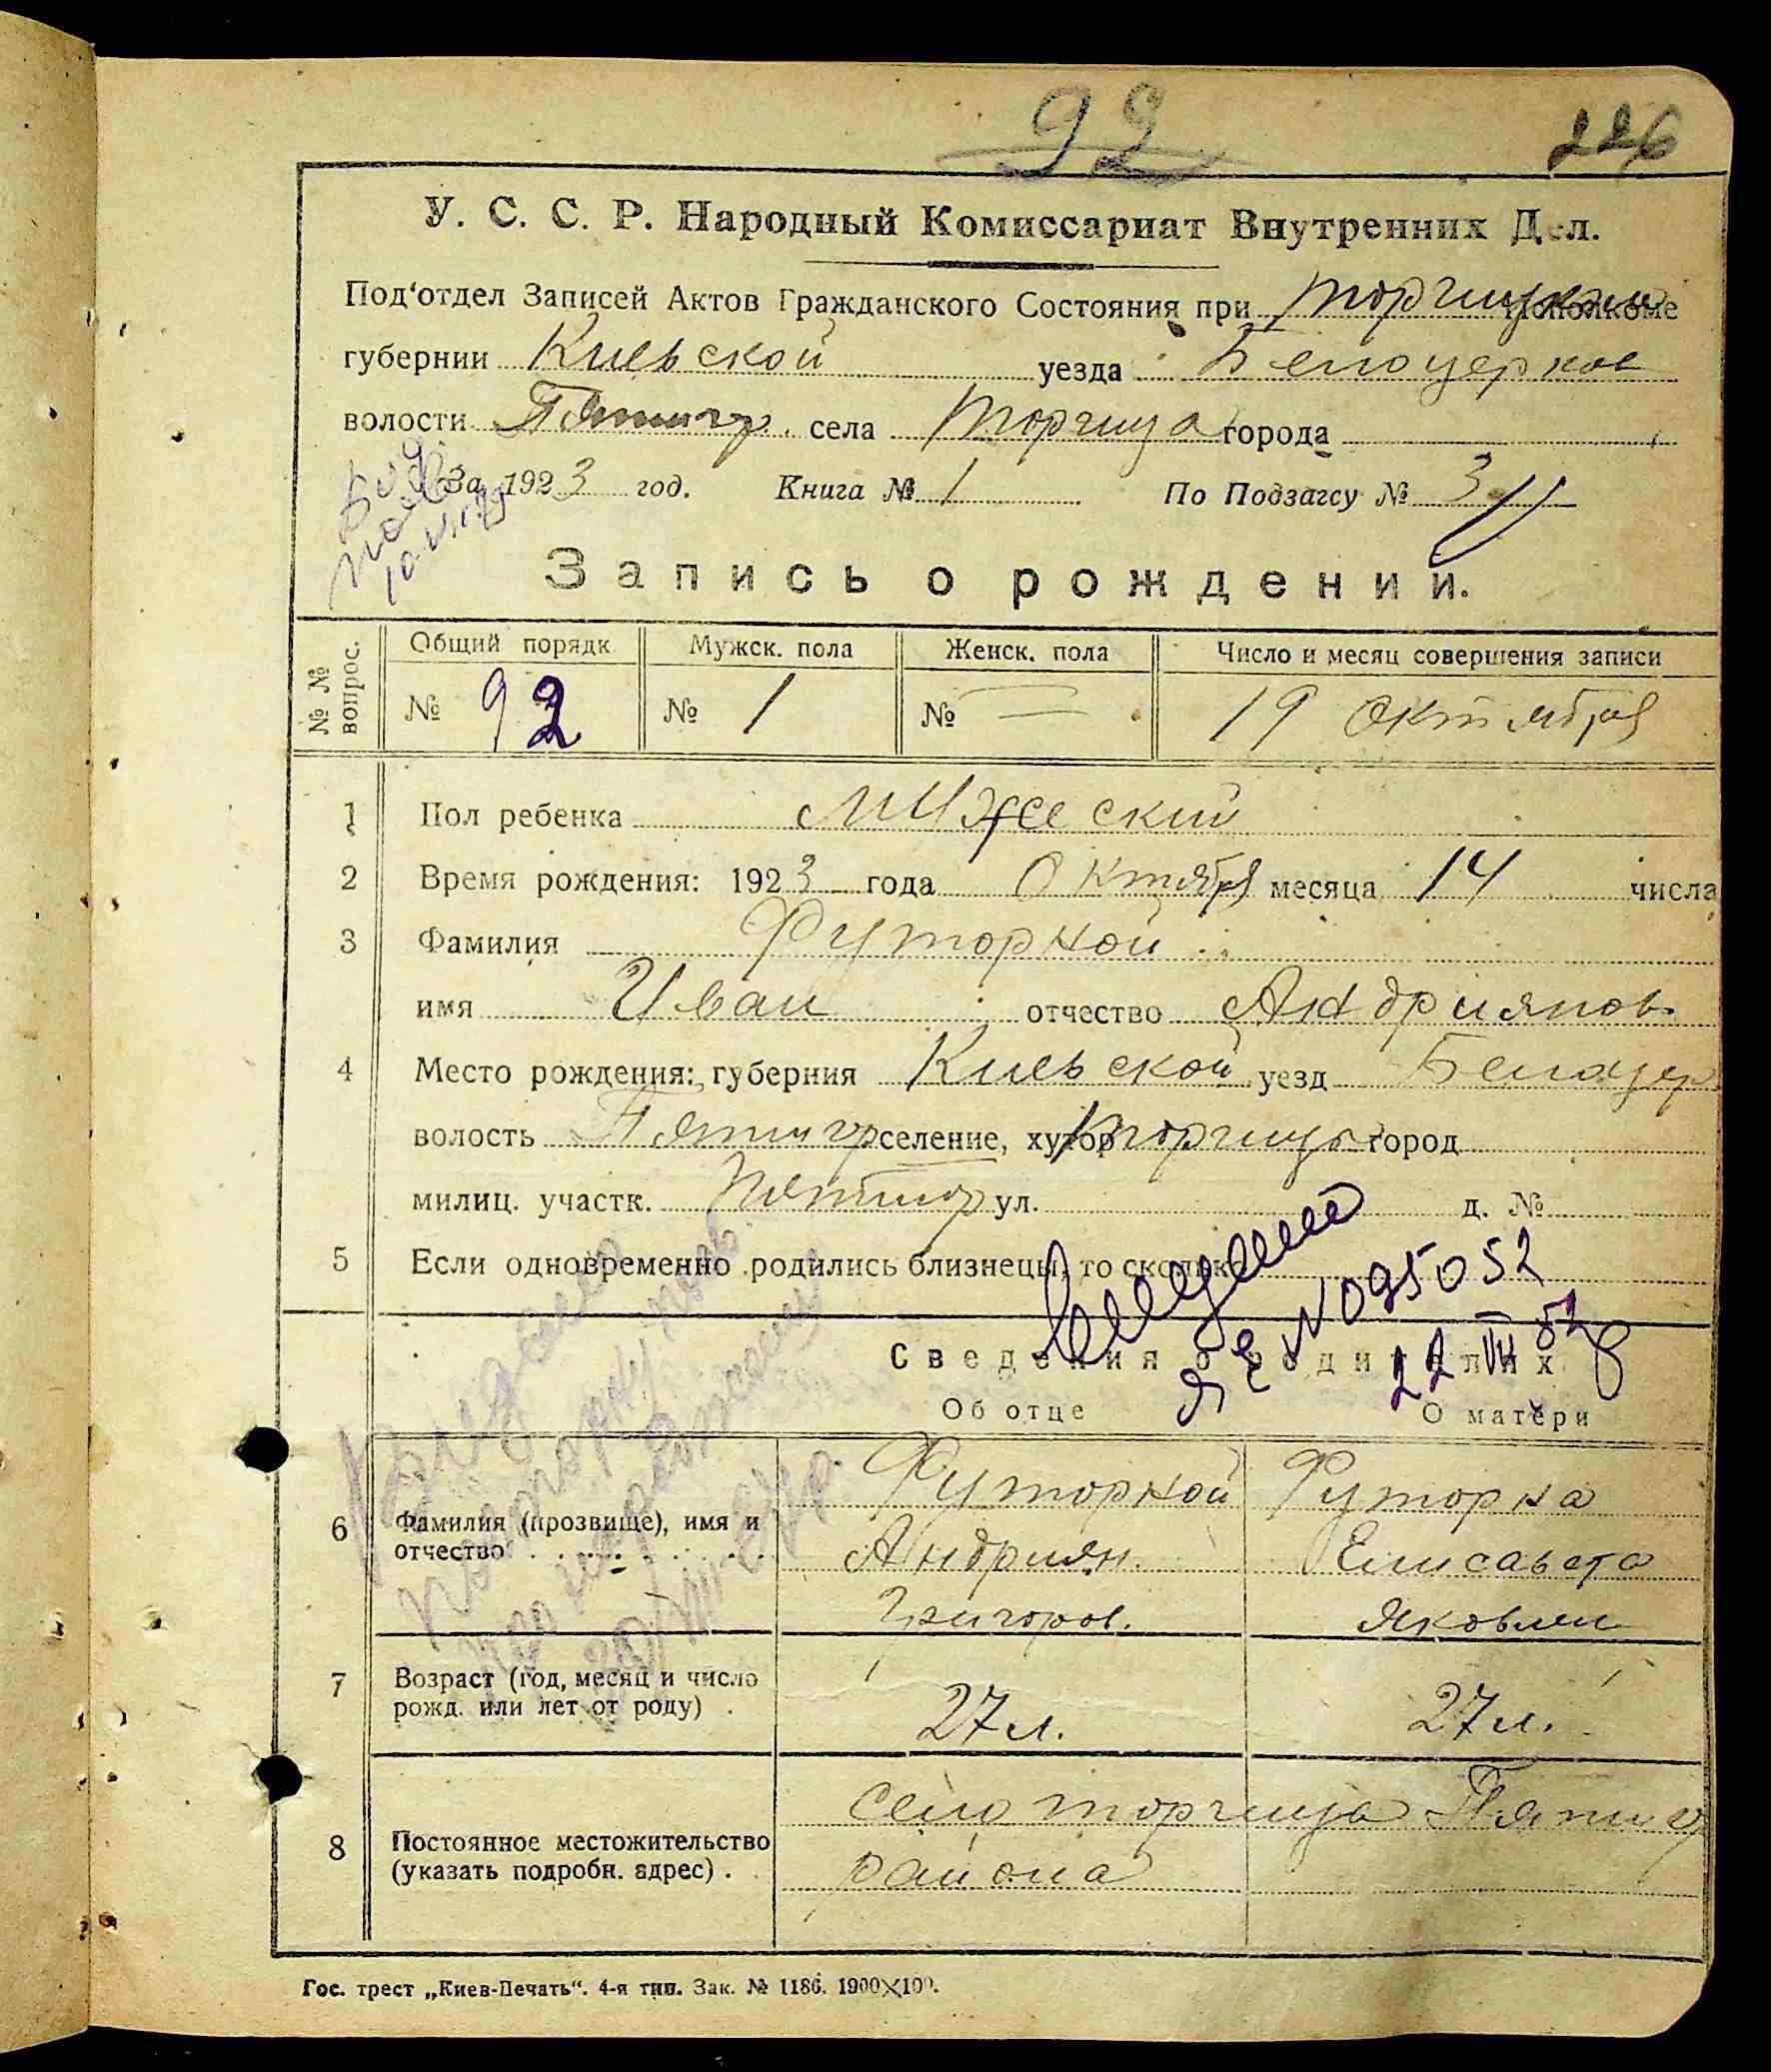 92
226
У. С. С. Р. Народный Комиссариат Внутренних Дел.
Под'отдел Записей Актов Гражданского Состояния при Торчицким Исполкоме
губернии Киевской уезда Белоцерков
волости Пятигор. села Торчица города
За 1923 год. Книга № 1 По Подзагсу № 3
Запись о рождении.
№ № вопрос. Общий порядк Мужск. пола Женск. пола Число и месяц совершения записи
№ 92 № 1 № — 19 октября
1 Пол ребенка Мужеский
2 Время рождения: 1923 года Октября месяца 14 числа
3 Фамилия Футорной
имя Иван отчество Андриянов.
4 Место рождения: губерния Киевской уезд Белоцер
волость Пятигор селение, хутор Торчица город
милиц. участк. Пятигор ул. д. №
5 Если одновременно родились близнецы, то сколько
ЯЕ № 095052
22 VII 52
Сведения о родителях
Об отце О матери
6 Фамилия (прозвище), имя и отчество
Футорной Футорна
Андриян. Елисавета
Григоров. Яковлен
7 Возраст (год, месяц и число рожд. или лет от роду) . 27 л. 27 л.
8 Постоянное местожительство (указать подробн. адрес) .
село Торчица Пятигор
района
Гос. трест „Киев-Печать“. 4-я тип. Зак. № 1186. 1900×100.